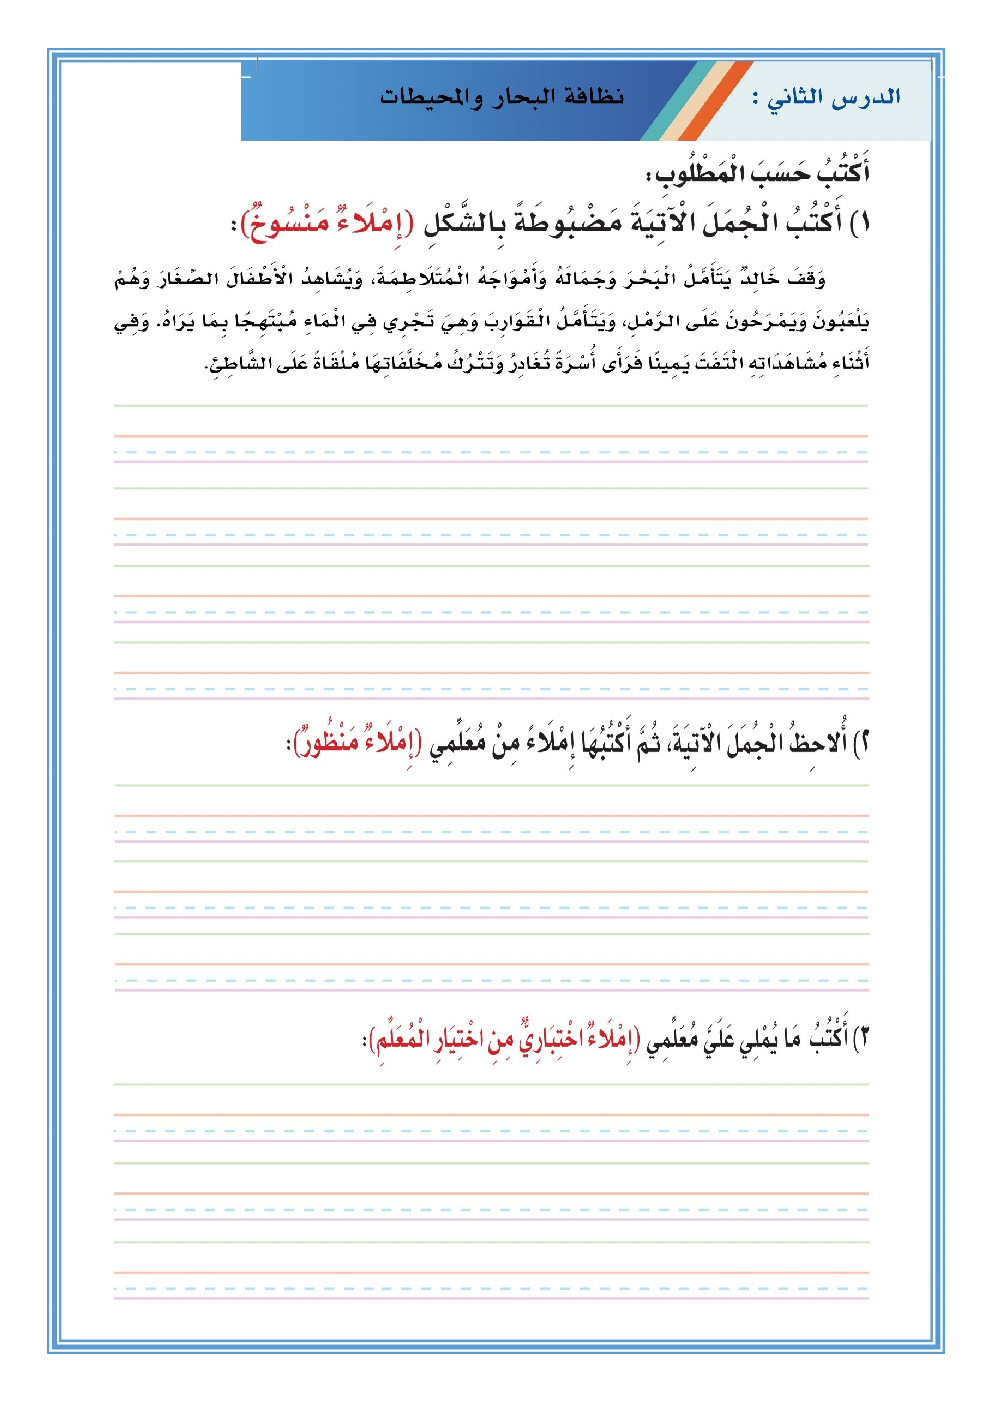 الدرس الثاني : نظافة البحار والمحيطات
أَكْتُبُ حَسَبَ الْمَطْلُوبِ:
١) أَكْتُبُ الْجُمَلَ الْآتِيَةَ مَضْبُوطَةً بِالشَّكْلِ (إِمْلَاءٌ مَنْسُوخٌ):
وَقَفَ خَالِدٌ يَتَأَمَّلُ الْبَحْرَ وَجَمَالَهُ وَأَمْوَاجَهُ الْمُتَلَاطِمَةَ، وَيُشَاهِدُ الْأَطْفَالَ الصِّغَارَ وَهُمْ
يَلْعَبُونَ وَيَمْرَحُونَ عَلَى الرَّمْلِ، وَيَتَأَمَّلُ الْقَوَارِبَ وَهِيَ تَجْرِي فِي الْمَاءِ مُبْتَهِجًا بِمَا يَرَاهُ. وَفِي
أَثْنَاءِ مُشَاهَدَاتِهِ الْتَفَتَ يَمِينًا فَرَأَى أُسْرَةً تُغَادِرُ وَتَتْرُكُ مُخَلَّفَاتِهَا مُلْقَاةً عَلَى الشَّاطِئِ.
٢) أُلاحِظُ الْجُمَلَ الْآتِيَةَ، ثُمَّ أَكْتُبُهَا إِمْلَاءً مِنْ مُعَلِّمِي (إِمْلَاءٌ مَنْظُورٌ):
٣) أَكْتُبُ مَا يُمْلِي عَلَيَّ مُعَلِّمِي (إِمْلَاءٌ اخْتِبَارِيٌّ مِنِ اخْتِيَارِ الْمُعَلِّمِ):